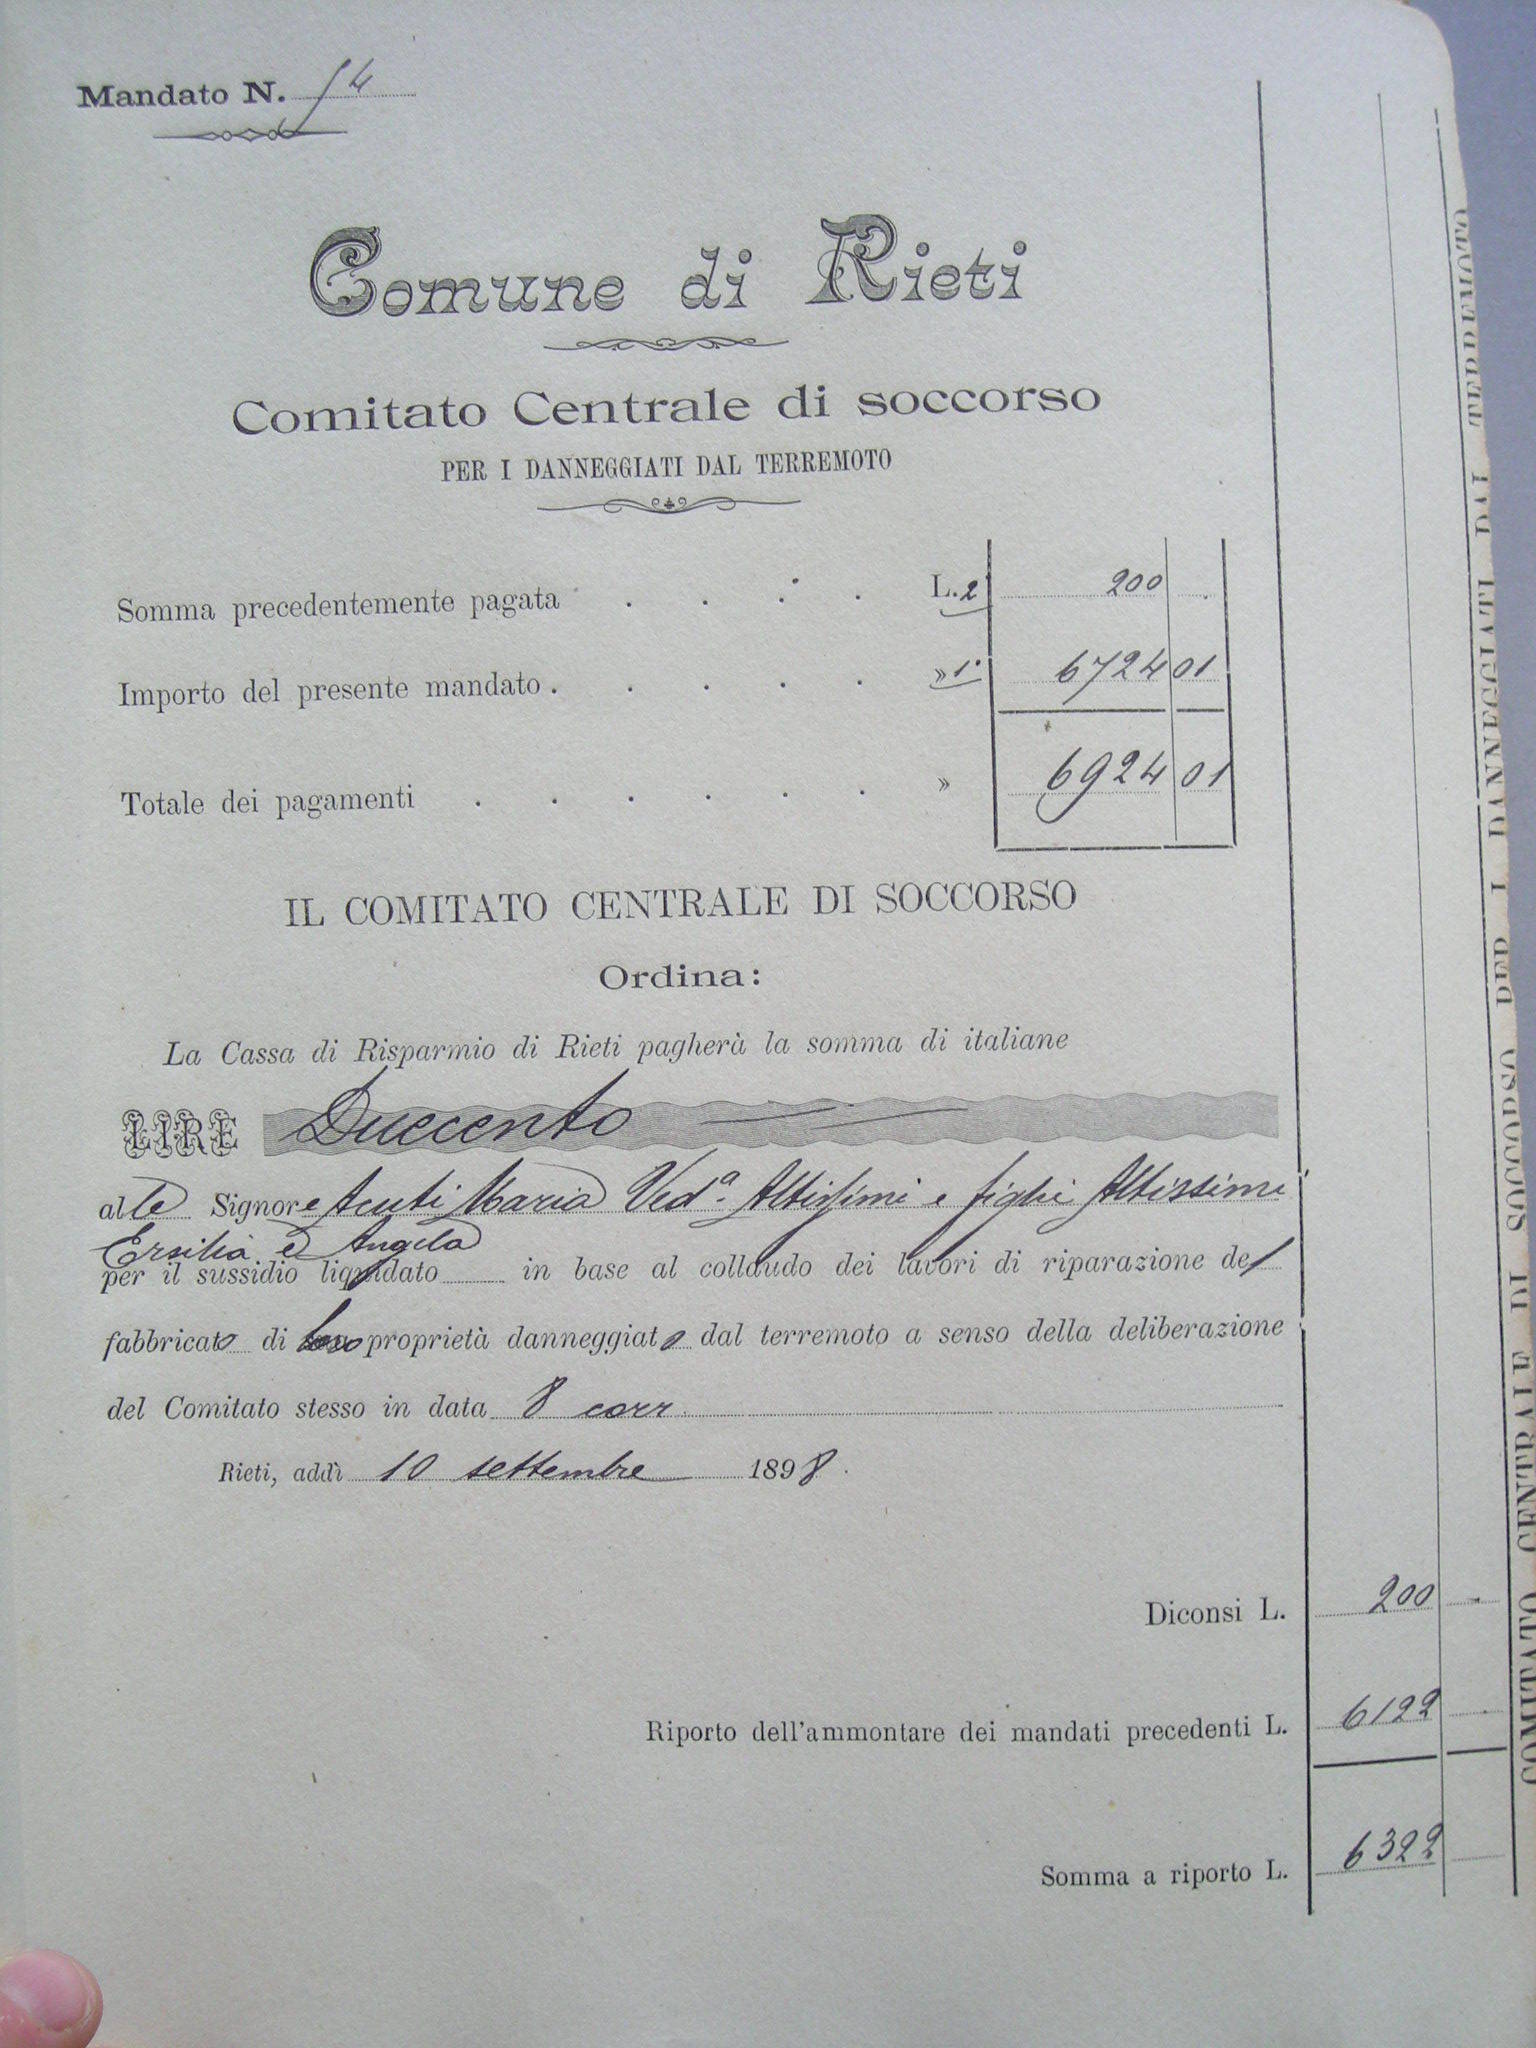 Mandato N. 54
Comune di Rieti
Comitato Centrale di soccorso
PER I DANNEGGIATI DAL TERREMOTO
Somma precedentemente pagata . . . . L. 2° 200
Importo del presente mandato . . . . . » 1° 6724 01
Totale dei pagamenti . . . . . . » 6924 01
IL COMITATO CENTRALE DI SOCCORSO
Ordina:
La Cassa di Risparmio di Rieti pagherà la somma di italiane
LIRE Duecento
alle Signore Maria Ved.a Altissimi e figlie Altissimi
Ersilia e Angela
per il sussidio liquidato in base al collaudo dei lavori di riparazione del
fabbricato di loro proprietà danneggiato dal terremoto a senso della deliberazione
del Comitato stesso in data 8 corr.
Rieti, addì 10 settembre 1898.
Diconsi L. 200 -
Riporto dell'ammontare dei mandati precedenti L. 6122
Somma a riporto L. 6322
COMITATO CENTRALE DI SOCCORSO PER I DANNEGGIATI DAL TERREMOTO